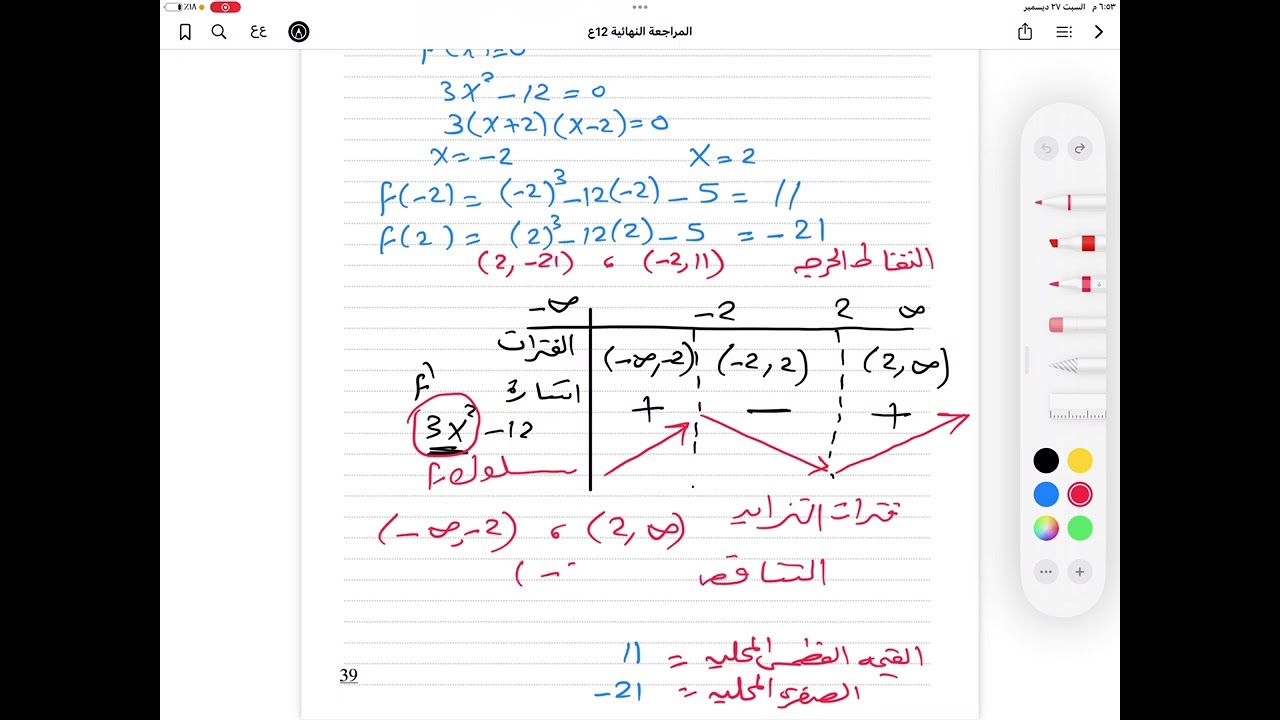 ٦:٥٣ م السبت ٢٧ ديسمبر
٪١٨
المراجعة النهائية 12ع
عع
3x² - 12 = 0
3(x+2)(x-2) = 0
x = -2 x = 2
f(-2) = (-2)³ - 12(-2) - 5 = 11
f(2) = (2)³ - 12(2) - 5 = -21
النقاط الحرجه (-2, 11) ، (2, -21)
-∞ -2 2 ∞
الفترات (-∞, -2) (-2, 2) (2, ∞)
f' اشارة
3x² - 12 + − +
سلوك f
فترات التزايد (2, ∞) ، (-∞, -2)
التناقص ( -
القيمه العظمى المحليه = 11
الصغرى المحليه = -21
39